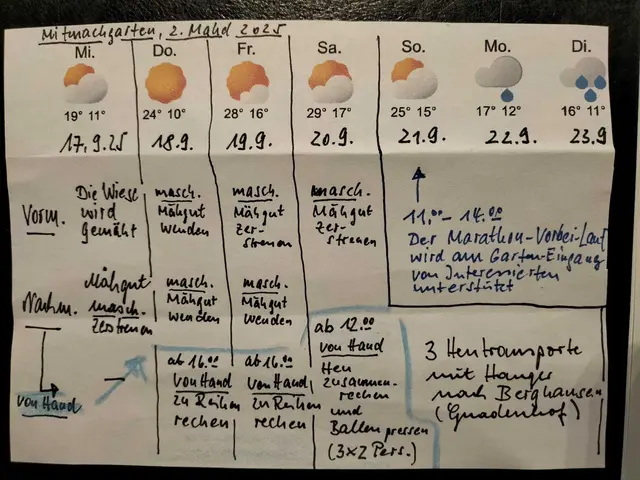 Mitmachgarten, 2. Mahd 2025
Mi. Do. Fr. Sa. So. Mo. Di.
19° 11° 24° 10° 28° 16° 29° 17° 25° 15° 17° 12° 16° 11°
17.9.25 18.9. 19.9. 20.9. 21.9. 22.9. 23.9
Vorm.
Die Wiese
wird
gemäht
masch.
Mähgut
wenden
masch.
Mähgut
zer-
streuen
masch.
Mähgut
zer-
streuen
11.00 - 14.00
Der Marathon-Vorbei-Lauf
wird am Garten-Eingang
von Interessierten
unterstützt
Nachm.
Mähgut
masch.
zerstreuen
masch.
Mähgut
wenden
masch.
Mähgut
wenden
von Hand
ab 16.00
von Hand
zu Reihen
rechen
ab 16.00
von Hand
zu Reihen
rechen
ab 12.00
von Hand
Heu
zusammen-
rechen
und
Ballen pressen
(3x2 Pers.)
3 Heutransporte
mit Hänger
nach Berghausen
(Gnadenhof)